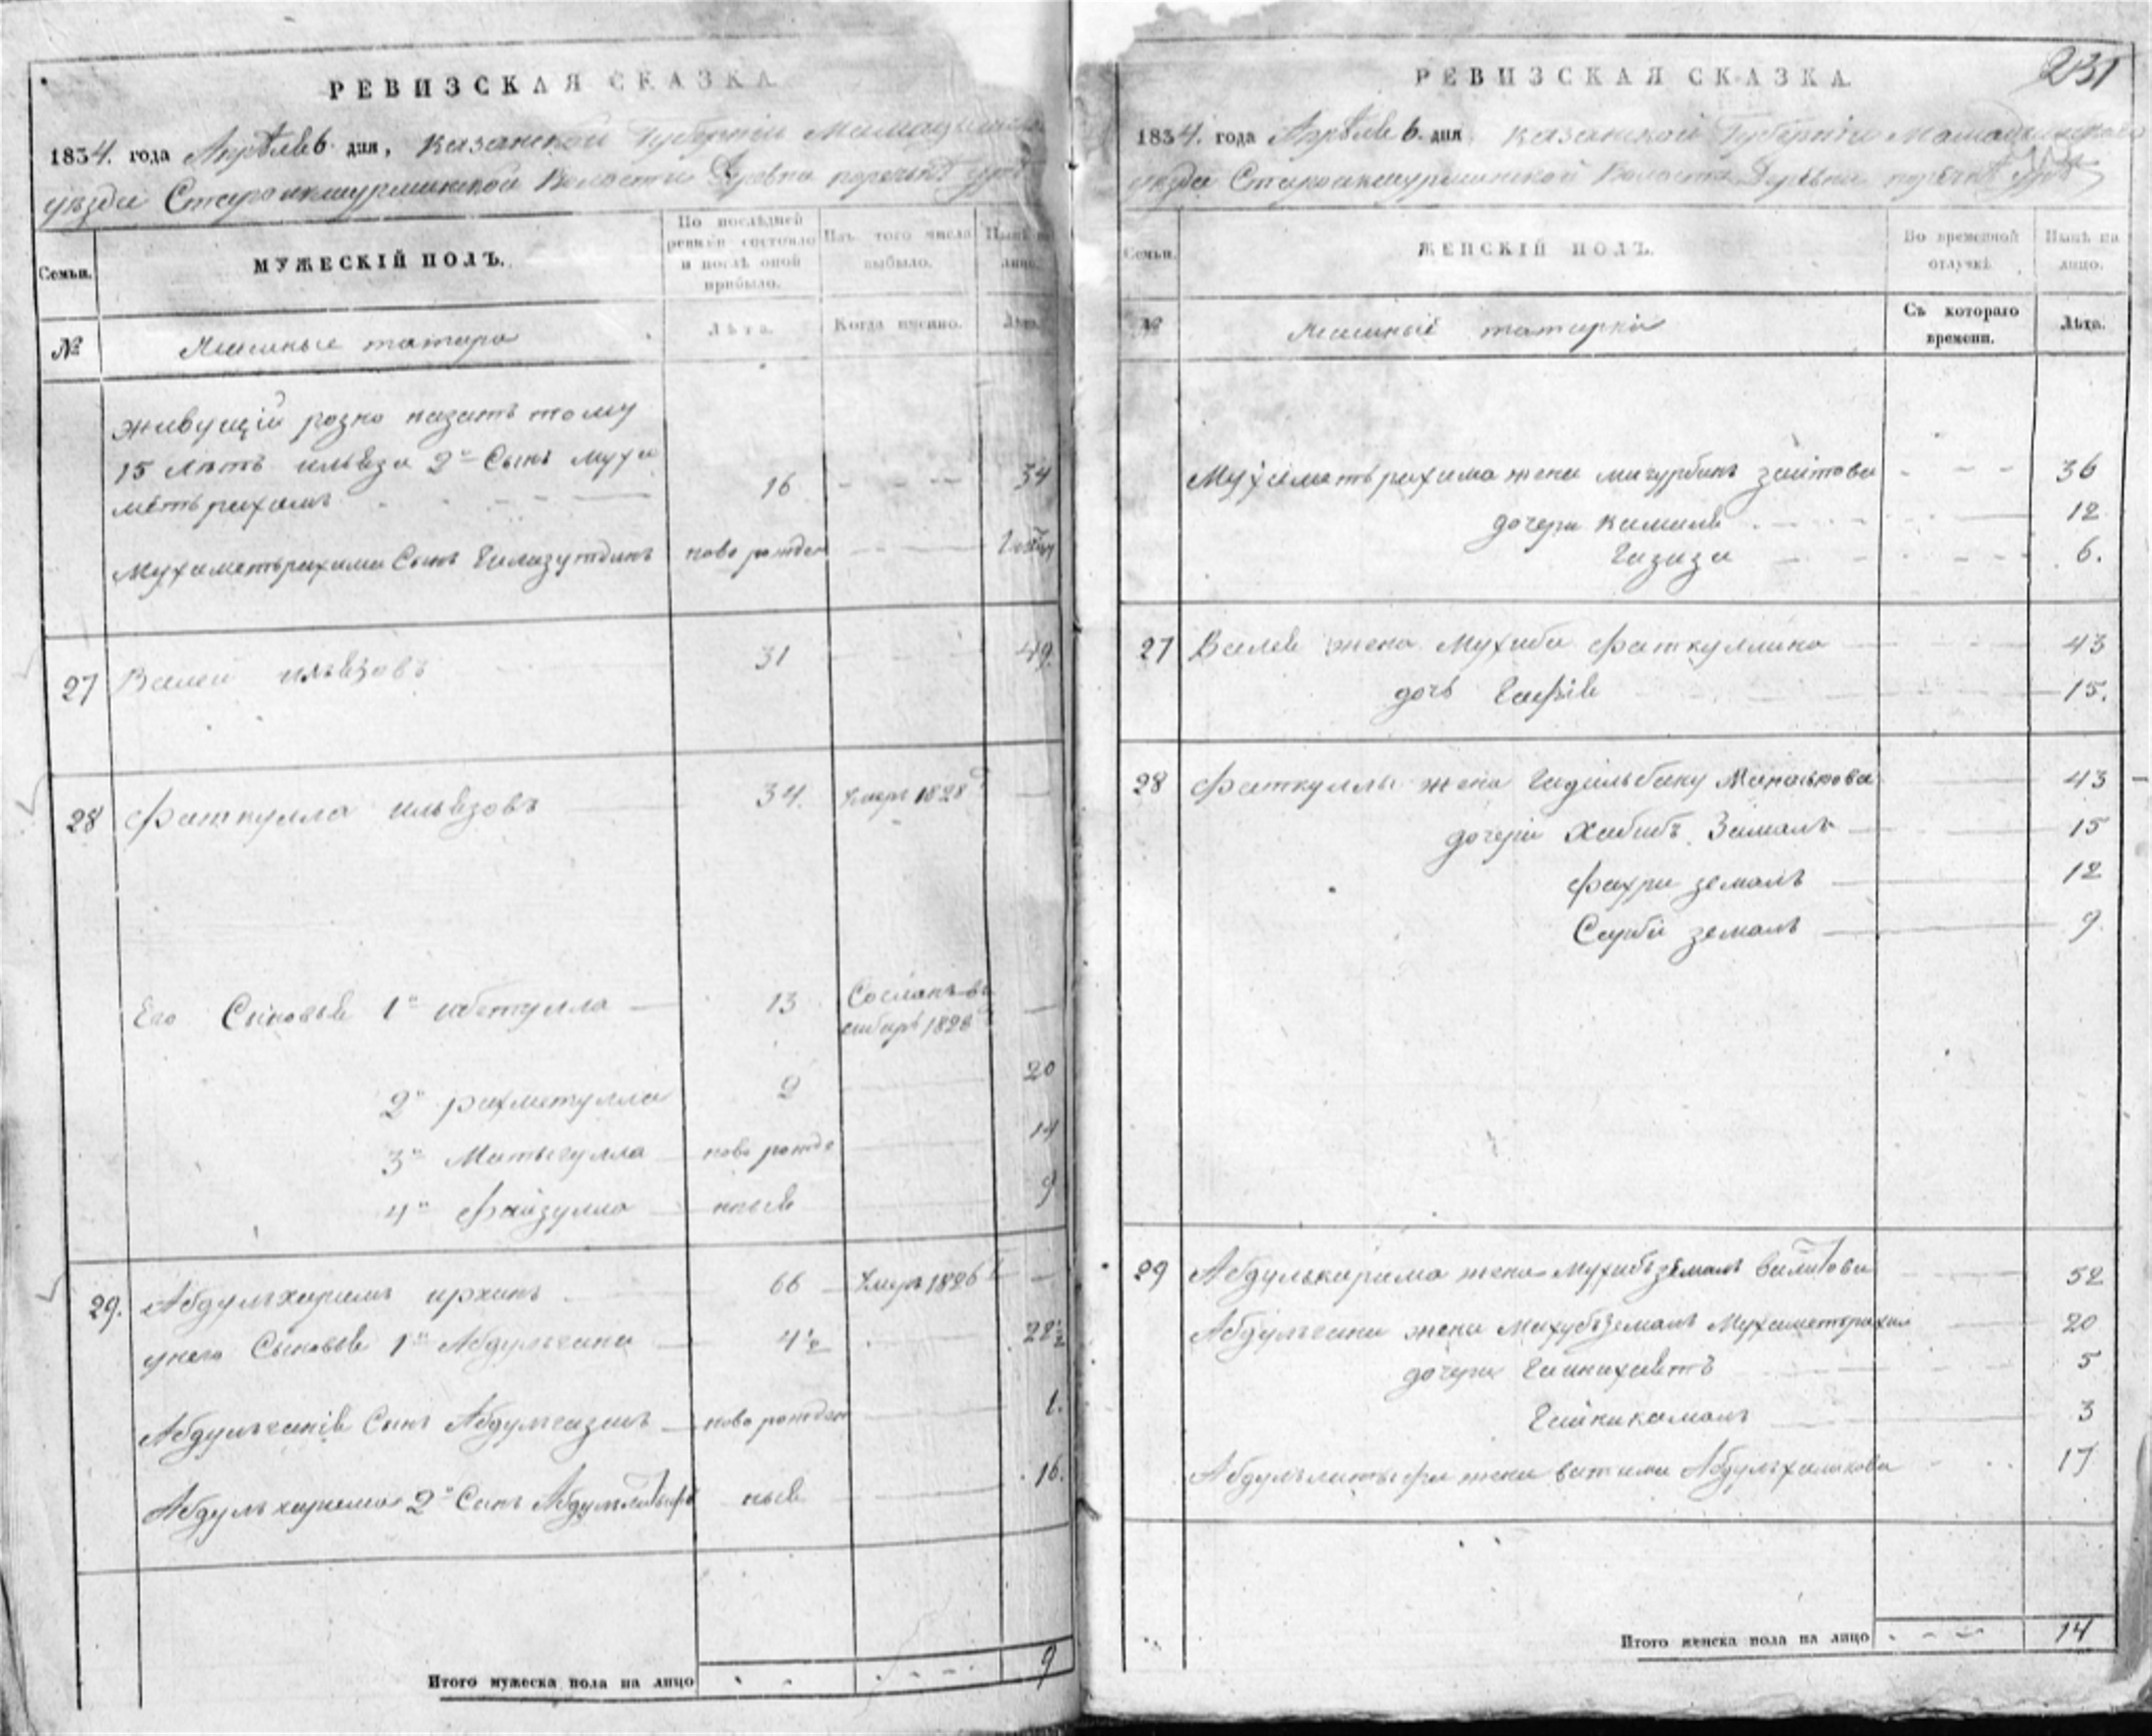 РЕВИЗСКАЯ СКАЗКА
1834. года Апрѣля 6. дня, Казанской Губернiи
уѣзда Староикшурминской Волости Деревни
Семьи.
МУЖЕСКІЙ ПОЛЪ.
По послѣдней ревизіи состояло и послѣ оной прибыло.
Изъ того числа выбыло.
Нынѣ на лицо.
№
татара
Лѣта.
Когда имянно.
Лѣта.
живущiй розно назатъ тому
15 лѣтъ ильяза 2й Сынъ муха
метърахимъ 16 34
Мухаметърахима Сынъ Гилязутдинъ ново рожден
27 Валей ильязовъ 31 49.
28 Фаткулла ильязовъ 34. умеръ 1828 —
Его Сыновья 1й ибетулла — 13 Сосланъ въ —
сибирь 1828
2й рахметулла 2 20
3й Матыгулла ново рожде 14
4й Файзулла ныя 9
29. Абдулхаримъ 66 умеръ 1826 —
унего Сыновья 1й Абдулгани 4½ 22½
Абдулганiя Сынъ Абдулгазизъ — ново рожден 1.
Абдулхарима 2й Сынъ Абдуллатыфъ ныя 16.
Итого мужеска пола на лицо 9
231
РЕВИЗСКАЯ СКАЗКА.
1834. года Апрѣля 6. дня Казанской Губернiи Мамадышскаго
уѣзда Староикшурминской Волости Деревни
Семьи.
ЖЕНСКІЙ ПОЛЪ.
Во временной отлучкѣ
Нынѣ на лицо.
№
татарки
Съ котораго времени.
Лѣта.
Мухаметърахима жена магурбика заитова 36
дочери камиля 12
Газиза 6.
27 Валея жена Мухиба Фаткуллина 43
дочь Гафiя 15.
28 Фаткуллы жена Гадильбану 43
дочери Хабибъ Замалъ 15
Фахри земалъ 12
Сарби земалъ 9.
29 Абдулькарима жена Мухибъземалъ 52
Абдулгани жена Махубъземалъ Мухаметърахим 20
дочери 5
Гайникамалъ 3
Абдуллатыфа жена Фатима Абдулхаликова 17
Итого женска пола на лицо 14